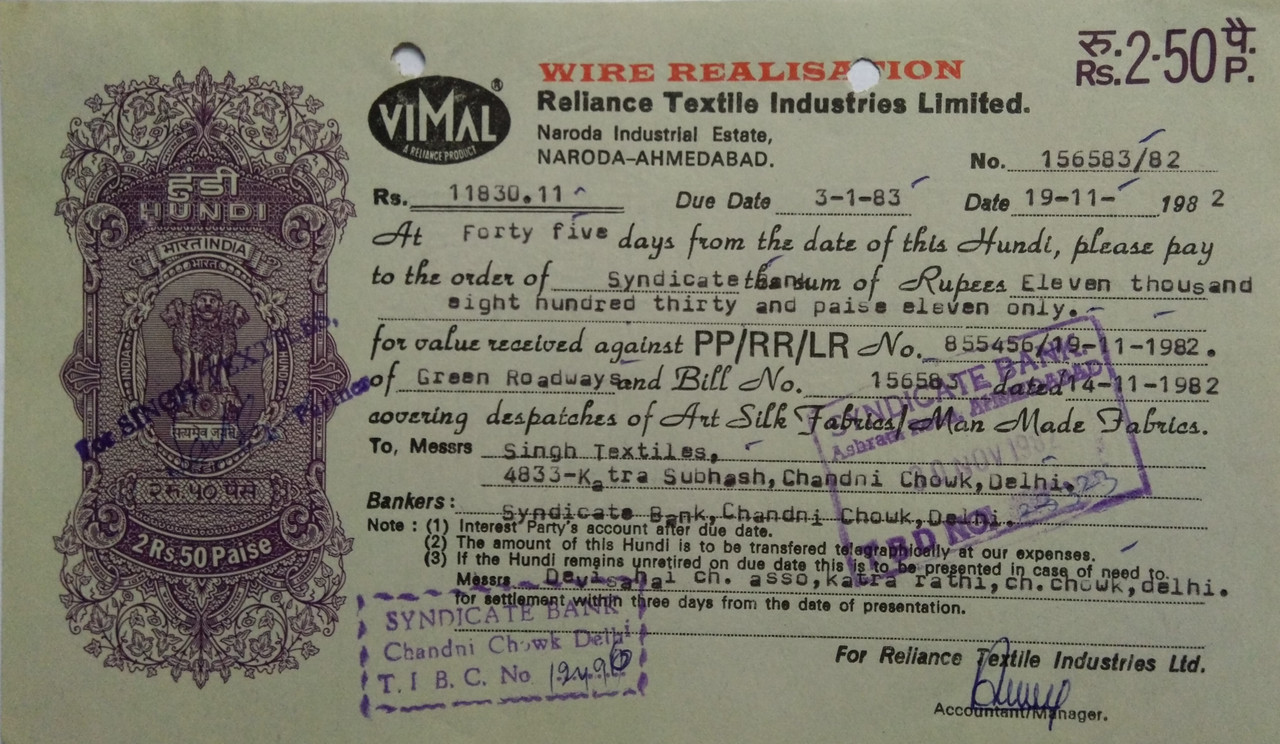 रु. 2-50 पै.
Rs. P.
VIMAL ®
A RELIANCE PRODUCT
WIRE REALISATION
Reliance Textile Industries Limited.
Naroda Industrial Estate,
NARODA-AHMEDABAD.
No. 156583/82
Rs. 11830.11 Due Date 3-1-83 Date 19-11- 1982
हुंडी
HUNDI
भारत INDIA
भारत
INDIA
HUNDI
सत्यमेव जयते
२ रु. ५० पैसे
2 Rs. 50 Paise
For SINGH TEXTILES,
Partner
At Forty five days from the date of this Hundi, please pay
to the order of Syndicate Bank the sum of Rupees Eleven thousand
eight hundred thirty and paise eleven only.
for value received against PP/RR/LR No. 855456/19-11-1982.
of Green Roadways and Bill No. 156583 dated 14-11-1982
covering despatches of Art Silk Fabrics/Man Made Fabrics.
To, Messrs Singh Textiles,
4833-Katra Subhash, Chandni Chowk, Delhi.
Bankers: Syndicate Bank, Chandni Chowk, Delhi.
Note : (1) Interest Party's account after due date.
(2) The amount of this Hundi is to be transfered telegraphically at our expenses.
(3) If the Hundi remains unretired on due date this is to be presented in case of need to.
Messrs Devisahai ch. asso, katra rathi, ch. chowk, delhi.
for settlement within three days from the date of presentation.
SYNDICATE BANK
NOV 1982
SYNDICATE BANK
Chandni Chowk Delhi
T. I B. C. No
For Reliance Textile Industries Ltd.
Accountant/Manager.